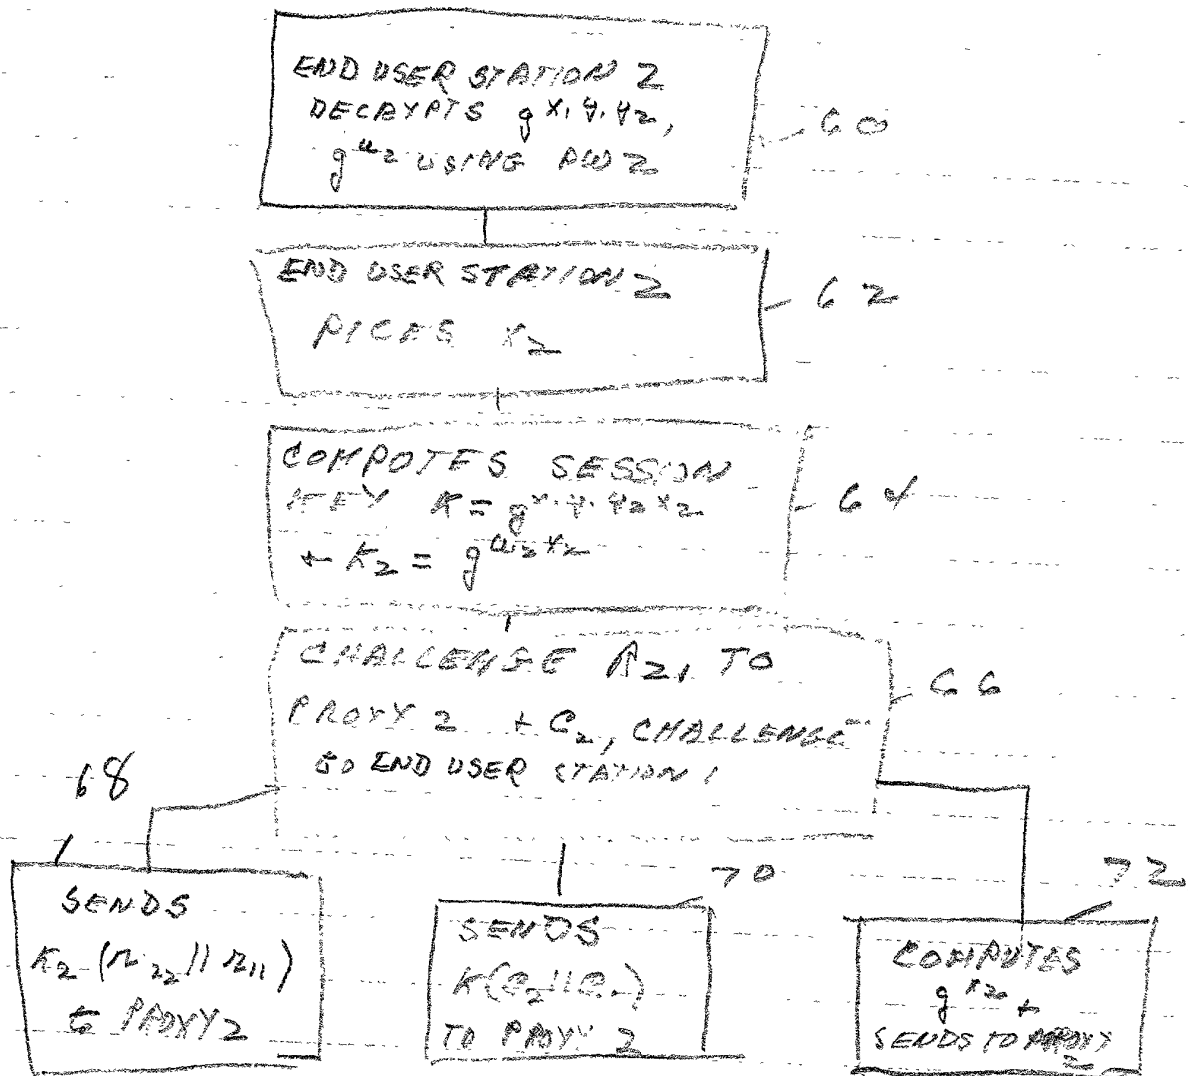 END USER STATION 2
DECRYPTS g^x.y.y2,
g^u2 USING PW2
60
END USER STATION 2
PICKS x2
62
COMPUTES SESSION
KEY K = g^x.y.y2 x2
+ K2 = g^u2 x2
64
CHALLENGE R21 TO
PROXY 2 + C2, CHALLENGE
to END USER STATION 1
66
68
SENDS
K2 (r22 || r11)
to PROXY 2
70
SENDS
K(C2 || C1)
TO PROXY 2
72
COMPUTES
g^x2 +
SENDS TO PROXY
2